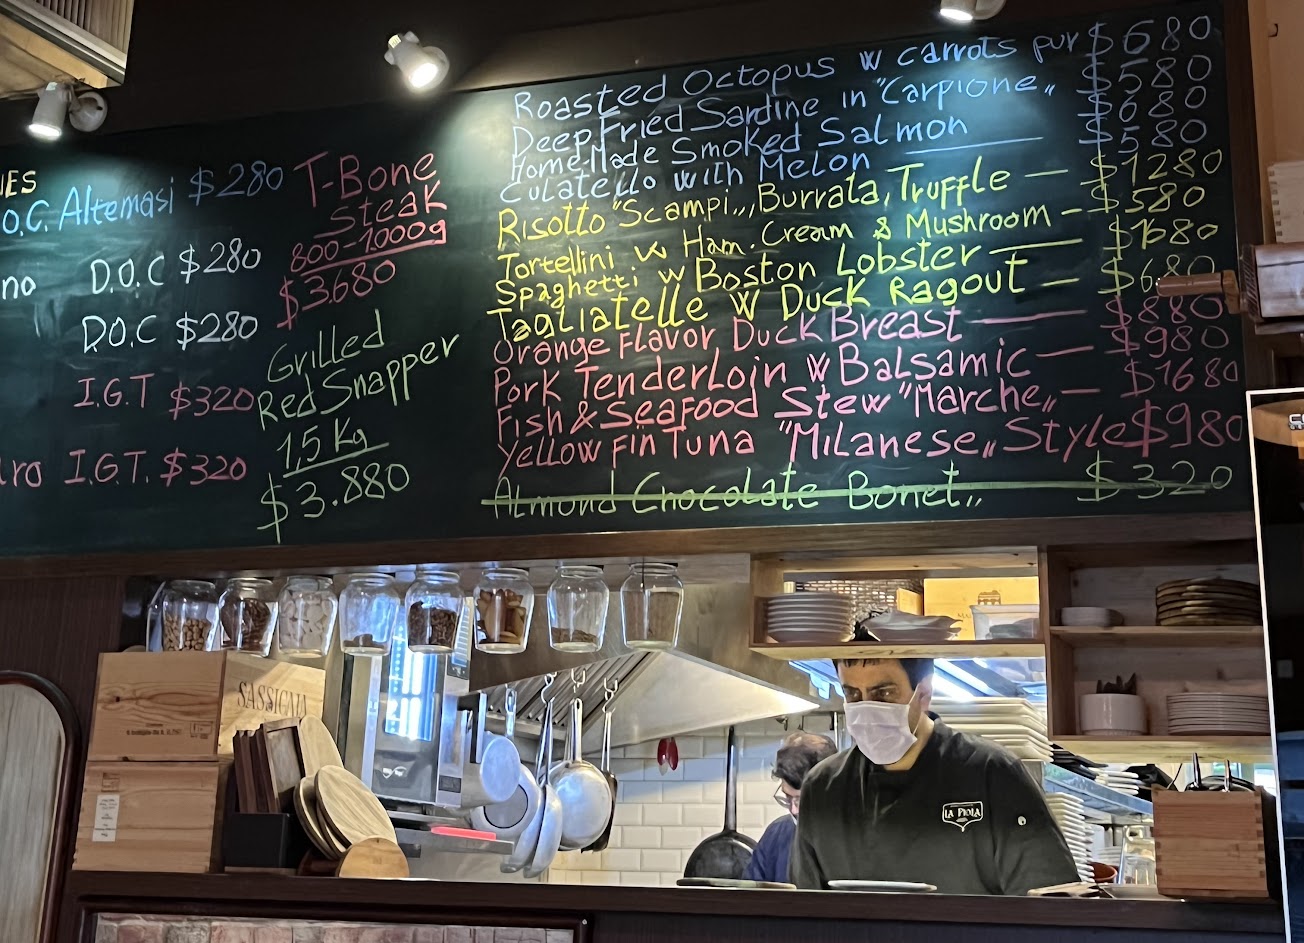 IES
O.C. Altemasi $280
no D.O.C $280
D.O.C $280
I.G.T $320
I.G.T. $320
T-Bone
Steak
800-1.000g
$3.680
Grilled
Red Snapper
1,5 Kg
$3.880
Roasted Octopus w carrots pur $680
Deep Fried Sardine in "Carpione„ $580
Home-Made Smoked Salmon $680
Culatello with Melon $580
Risotto "Scampi„, Burrata, Truffle — $1280
Tortellini w Ham. Cream & Mushroom - $580
Spaghetti w Boston Lobster — $1680
Tagliatelle w Duck Ragout — $680
Orange Flavor Duck Breast — $880
Pork Tenderloin w Balsamic — $980
Fish & Seafood Stew "Marche„ - $1680
Yellow Fin Tuna "Milanese„ Style $980
Almond Chocolate Bonet„ $320
SASSICAIA
LA PIOLA